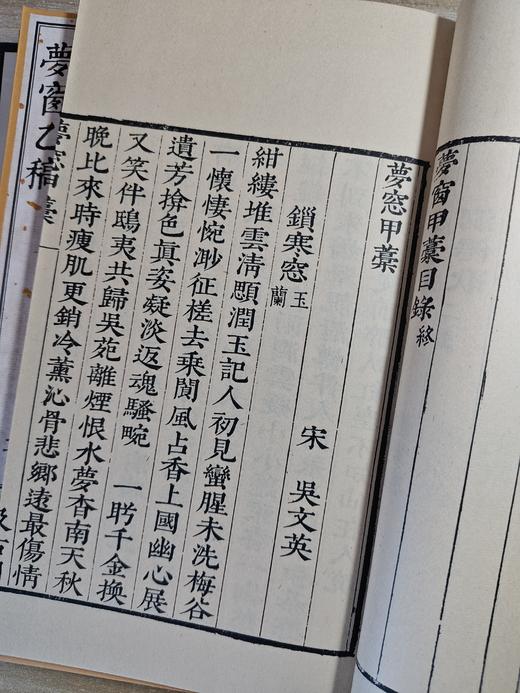 夢窗甲藁目錄終
夢窓甲藁
宋 吳文英
鎖寒窓玉蘭
紺縷堆雲淸顋潤玉記人初見蠻腥未洗梅谷
一懷悽惋渺征槎去乘閬風占香上國幽心展
遺芳揜色眞姿凝淡返魂騷畹 一盻千金換
又笑伴鴟夷共歸吳苑離煙恨水夢杳南天秋
晚比來時瘦肌更銷冷薰沁骨悲鄉遠最傷情
夢窗乙稿